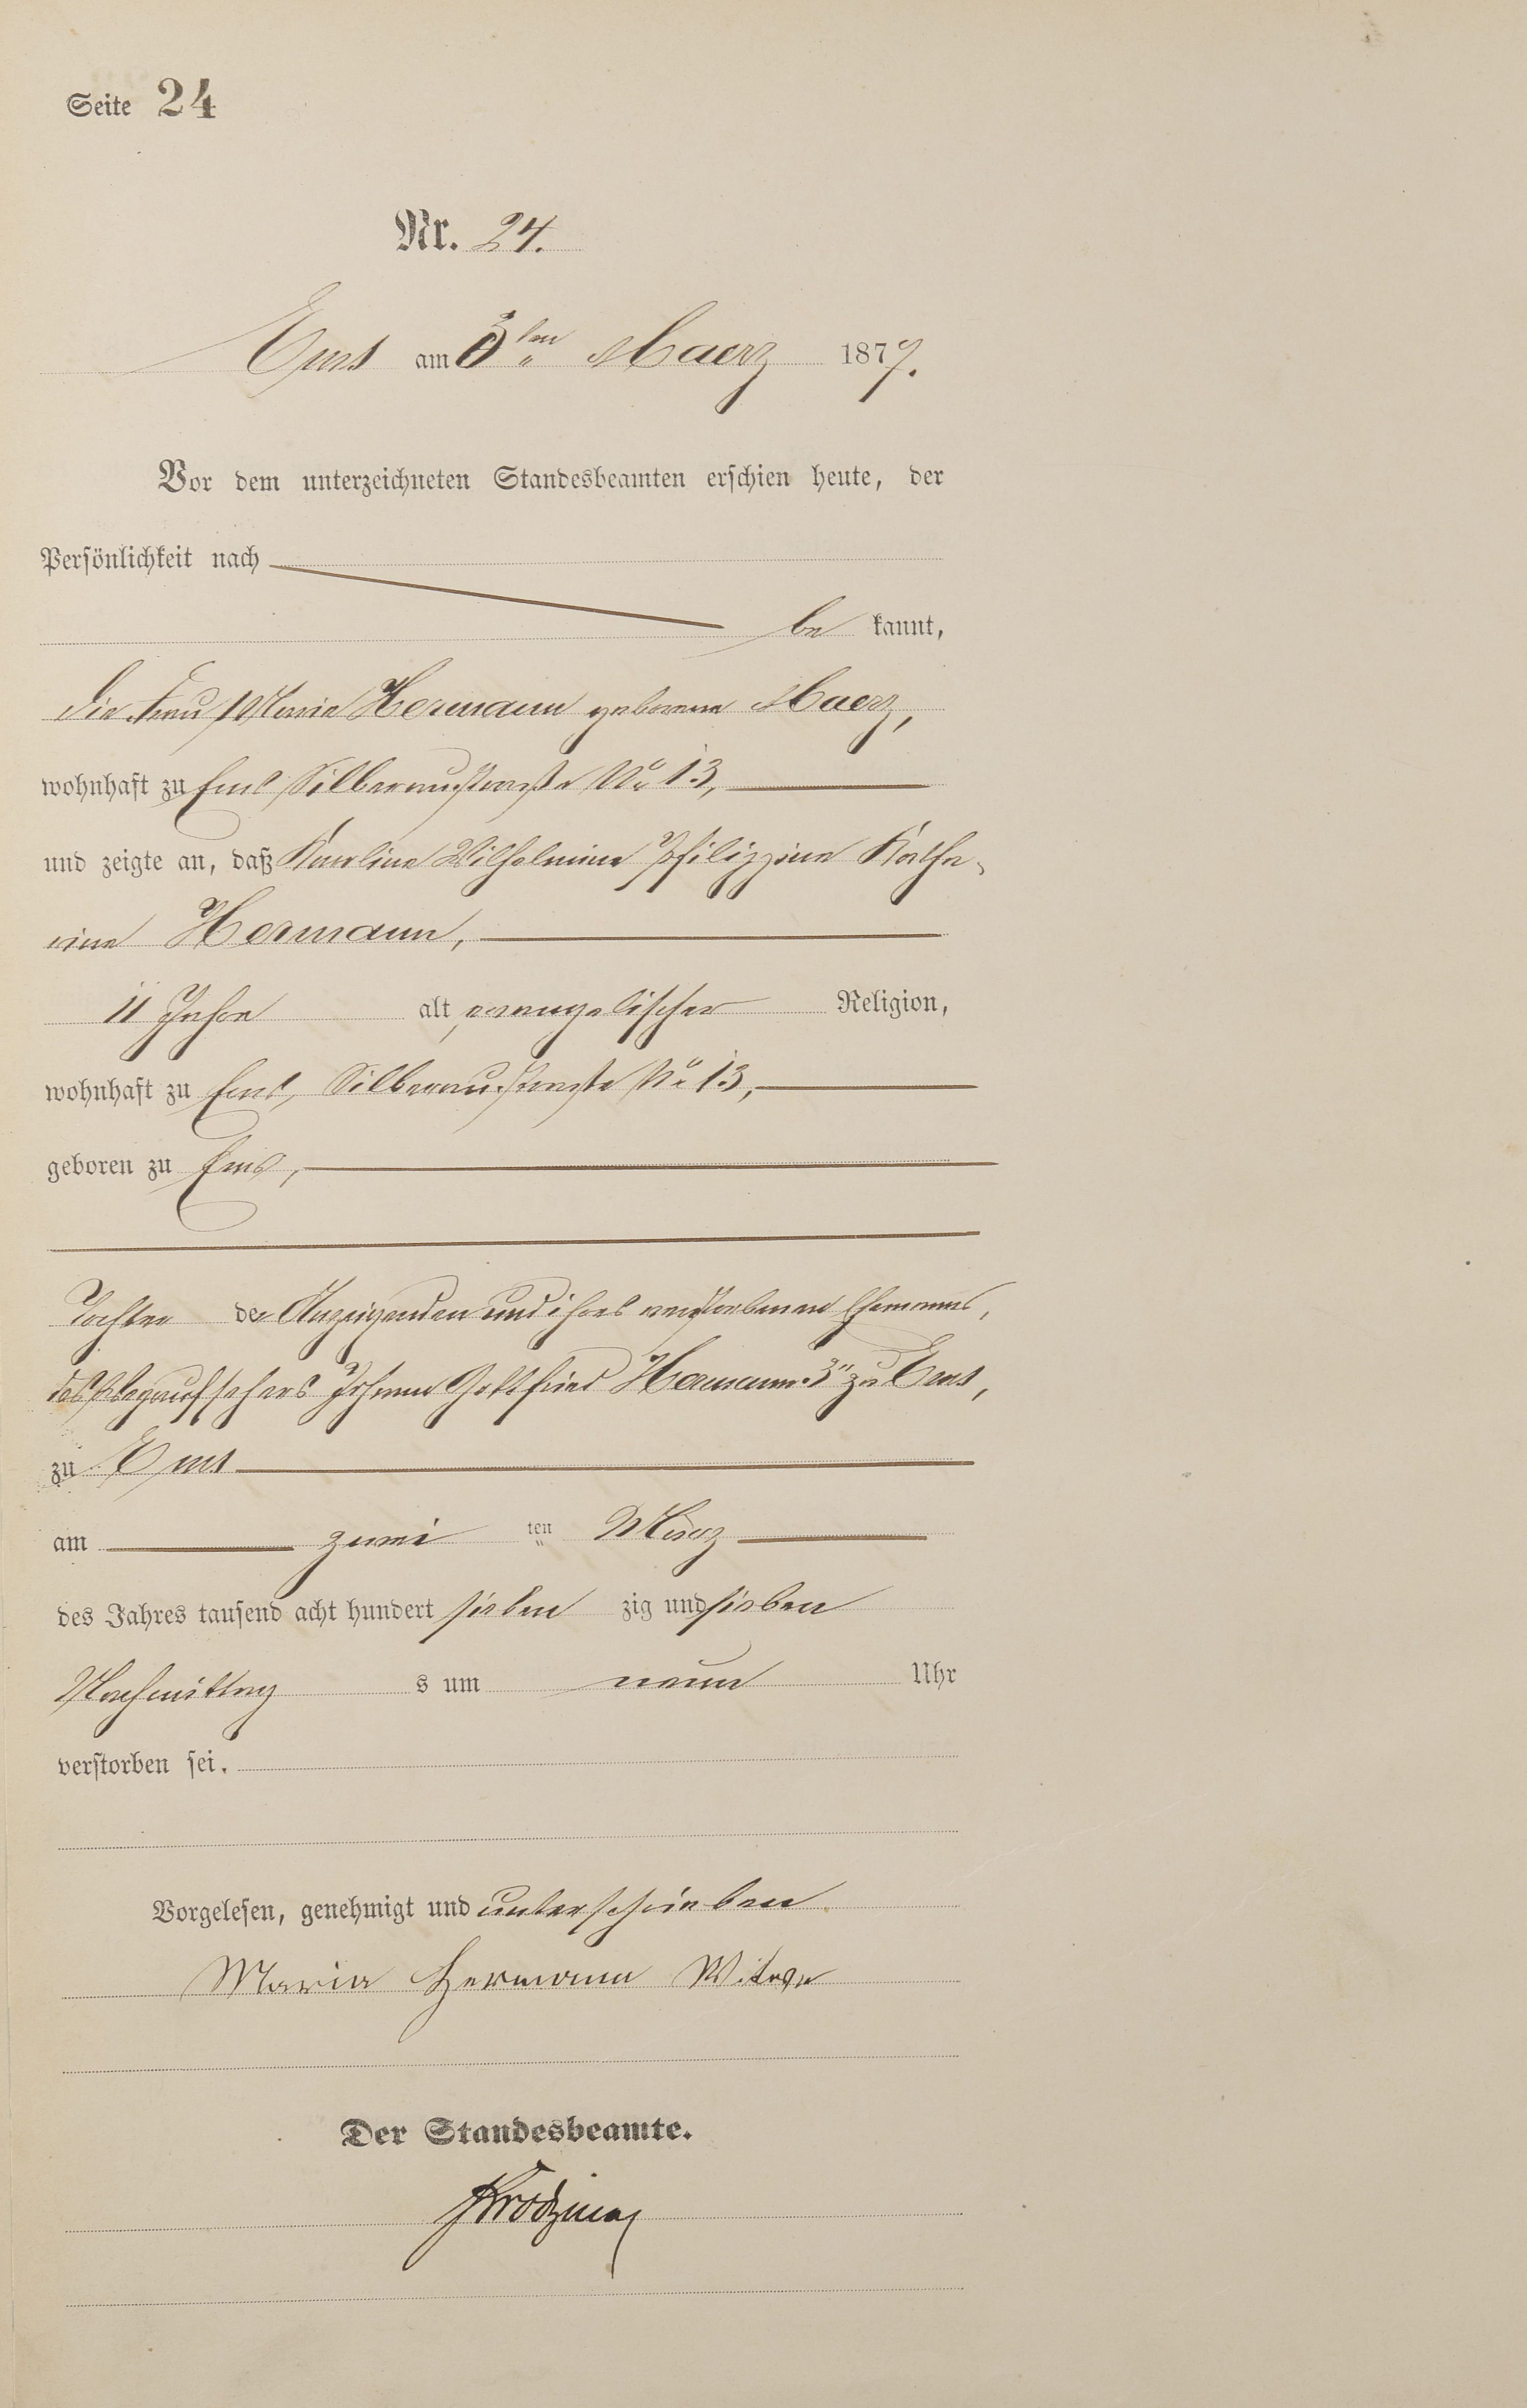 Seite 24
Nr. 24.
Ems am 3ten Maerz 1877.
Vor dem unterzeichneten Standesbeamten erschien heute, der
Persönlichkeit nach
be kannt,
die Frau Maria Hermann geborene Maerz,
wohnhaft zu Ems Silberaustraße No 13,
und zeigte an, daß Karoline Wilhelmine Philippine Katha-
rine Hermann,
11 Jahre alt, evangelischer Religion,
wohnhaft zu Ems, Silberaustraße No 13,
geboren zu Ems,
Tochter der Anzeigenden und ihres verstorbenen Ehemanns,
des Johann Gottfried Hermann 3r zu Ems,
zu Ems
am zwei ten März
des Jahres tausend acht hundert sieben zig und sieben
Nachmittag s um neun Uhr
verstorben sei.
Vorgelesen, genehmigt und unterschrieben
Maria Hermann Witwe
Der Standesbeamte.